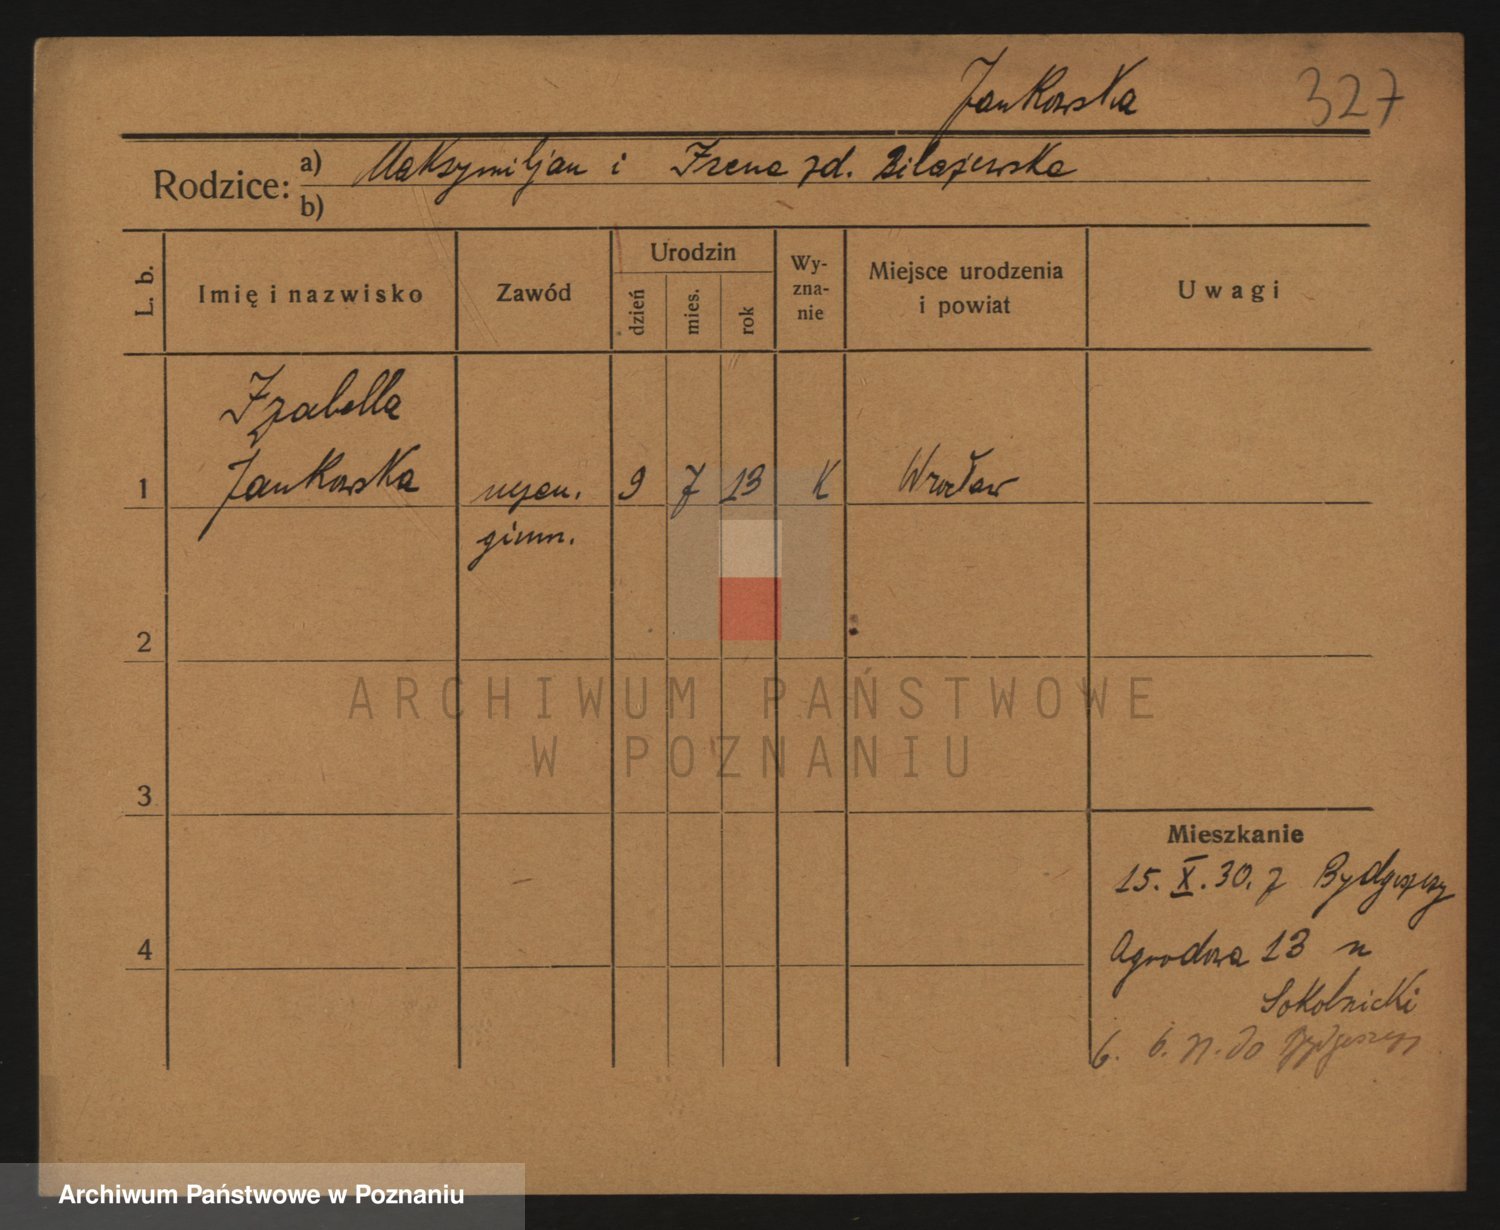 Jankowska 327
Rodzice: a) Maksymiljan i Irena zd.
b)
L. b.
Imię i nazwisko
Zawód
Urodzin
dzień
mies.
rok
Wy-
zna-
nie
Miejsce urodzenia
i powiat
Uwagi
Izabella
1 Jankowska uczen. 9 7 13 K Wrocław
gimn.
2
ARCHIWUM PAŃSTWOWE
W POZNANIU
3
Mieszkanie
15. X. 30. z Bydgoszczy
4 Ogrodowa 13 u
Sokolnicki
6. 6. do Bydgoszczy
Archiwum Państwowe w Poznaniu